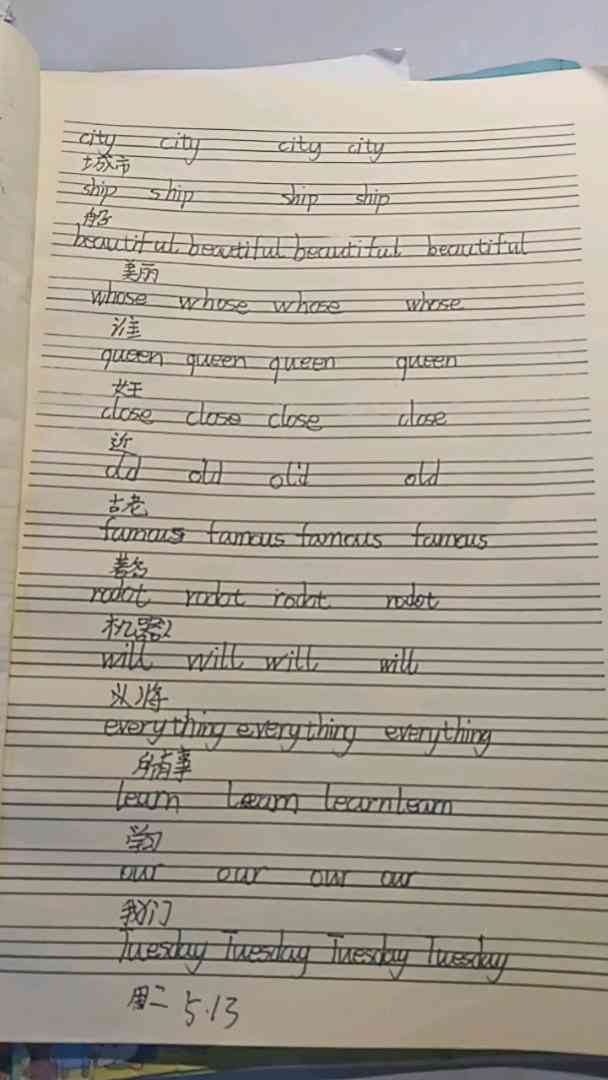 city city city city
城市
ship ship ship ship
船
beautiful beautiful beautiful beautiful
美丽
whose whose whose whose
谁
queen queen queen queen
女王
close close close close
近
old old old old
古老
famous famous famous famous
著名
rodot rodot rodot rodot
机器
will will will will
将
everything everything everything
所有事
learn Learn learn learn
学习
our our our our
我们
Tuesday Tuesday Tuesday Tuesday
周二 5.13